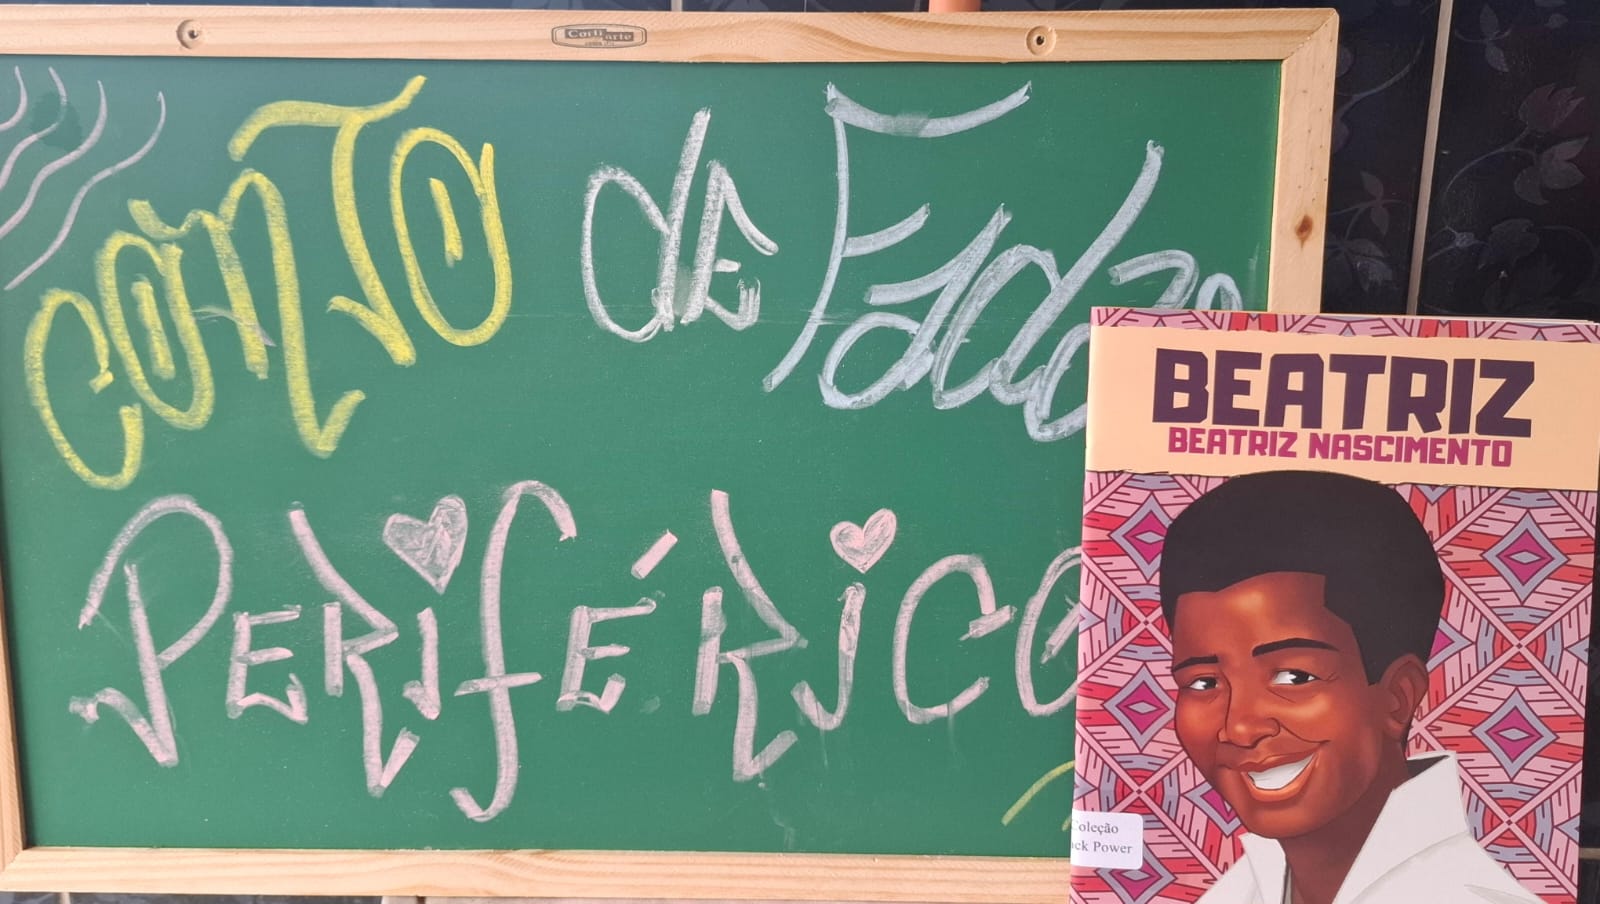 Corti arte
CONTO de Fadas
PERIFÉRICO
BEATRIZ
BEATRIZ NASCIMENTO
Coleção
ck Power